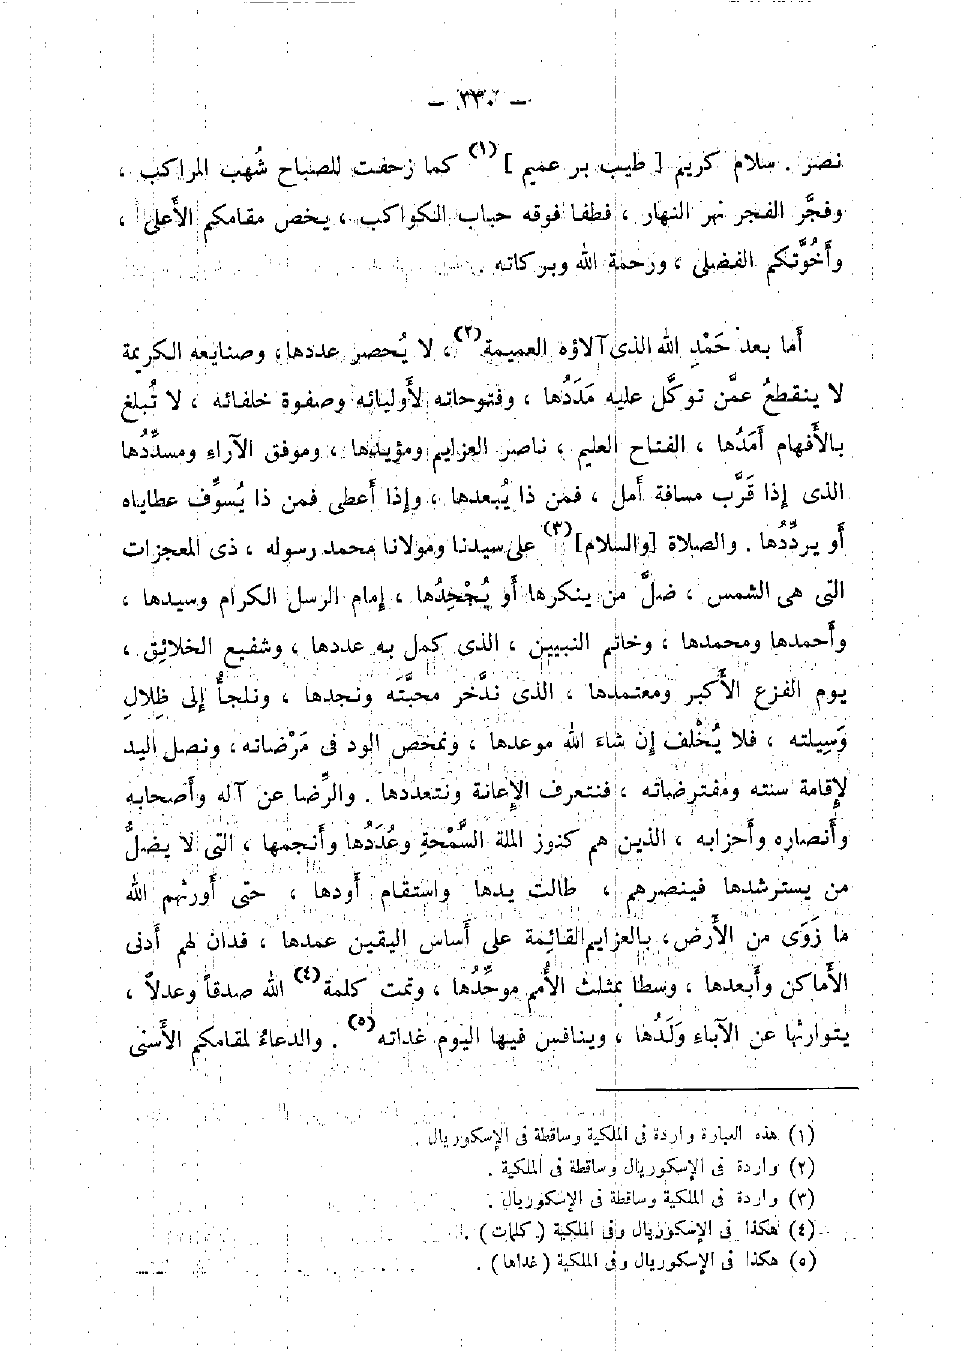 — ٣٣٠ —
نصر . سلام كريم [ طيب بر عميم ] (١) كما زحفت للصباح شُهب المراكب ،
وفجَّر الفجر نهر النهار ، فطفا فوقه حباب الكواكب ، يخص مقامكم الأعلى ،
وأُخُوَّتكم الفضلى ، ورحمة الله وبركاته .
أما بعد حَمْدِ الله الذى آلاؤه العميمة (٢) ، لا يُحصر عددها ، وصنايعه الكريمة
لا ينقطعُ عمَّن توكَّل عليه مَدَدُها ، وفتوحاته لأوليائه وصفوة خلفائه ، لا تُبلغ
بالأفهام أَمَدُها ، الفتاح العليم ، ناصر العزايم ومؤيدها ، وموفق الآراء ومسدِّدُها
الذى إذا قَرَّب مسافة أمل ، فمن ذا يُبعدها ، وإذا أعطى فمن ذا يُسوِّف عطاياه
أو يردِّدُها . والصلاة [والسلام] (٣) على سيدنا ومولانا محمد رسوله ، ذى المعجزات
التى هى الشمس ، ضلَّ من ينكرها أو يُجْحِدُها ، إمام الرسل الكرام وسيدها ،
وأحمدها ومحمدها ، وخاتم النبيين ، الذى كمل به عددها ، وشفيع الخلائق ،
يوم الفزع الأكبر ومعتمدها ، الذى ندَّخر محبَّته ونجدها ، ونلجأُ إلى ظِلالِ
وَسِيلته ، فلا يُخْلف إن شاء الله موعدها ، ونمخص الود فى مَرْضاته ، ونصل اليد
لإقامة سنته ومفترضاته ، فنتعرف الإعانة ونتعددها . والرِّضا عن آله وأصحابه
وأنصاره وأحزابه ، الذين هم كنوز الملة السَّمْحةِ وعُدَدُها وأنجمها ، التى لا يضلُّ
من يسترشدها فينصرهم ، طالت يدها واستقام أودها ، حتى أورثهم الله
ما زَوَى من الأرض ، بالعزايم القائمة على أساس اليقين عمدها ، فدان لهم أدنى
الأماكن وأبعدها ، وسطا بمثلث الأُمم موحِّدُها ، وتمت كلمة (٤) الله صدقاً وعدلاً ،
يتوارثها عن الآباء وَلَدُها ، وينافس فيها اليوم غداته (٥) . والدعاءُ لمقامكم الأسنى
(١) هذه العبارة واردة فى الملكية وساقطة فى الإسكوريال .
(٢) واردة فى الإسكوريال وساقطة فى الملكية .
(٣) واردة فى الملكية وساقطة فى الإسكوريال .
(٤) هكذا فى الإسكوريال وفى الملكية (كلمات) .
(٥) هكذا فى الإسكوريال وفى الملكية (غداها) .